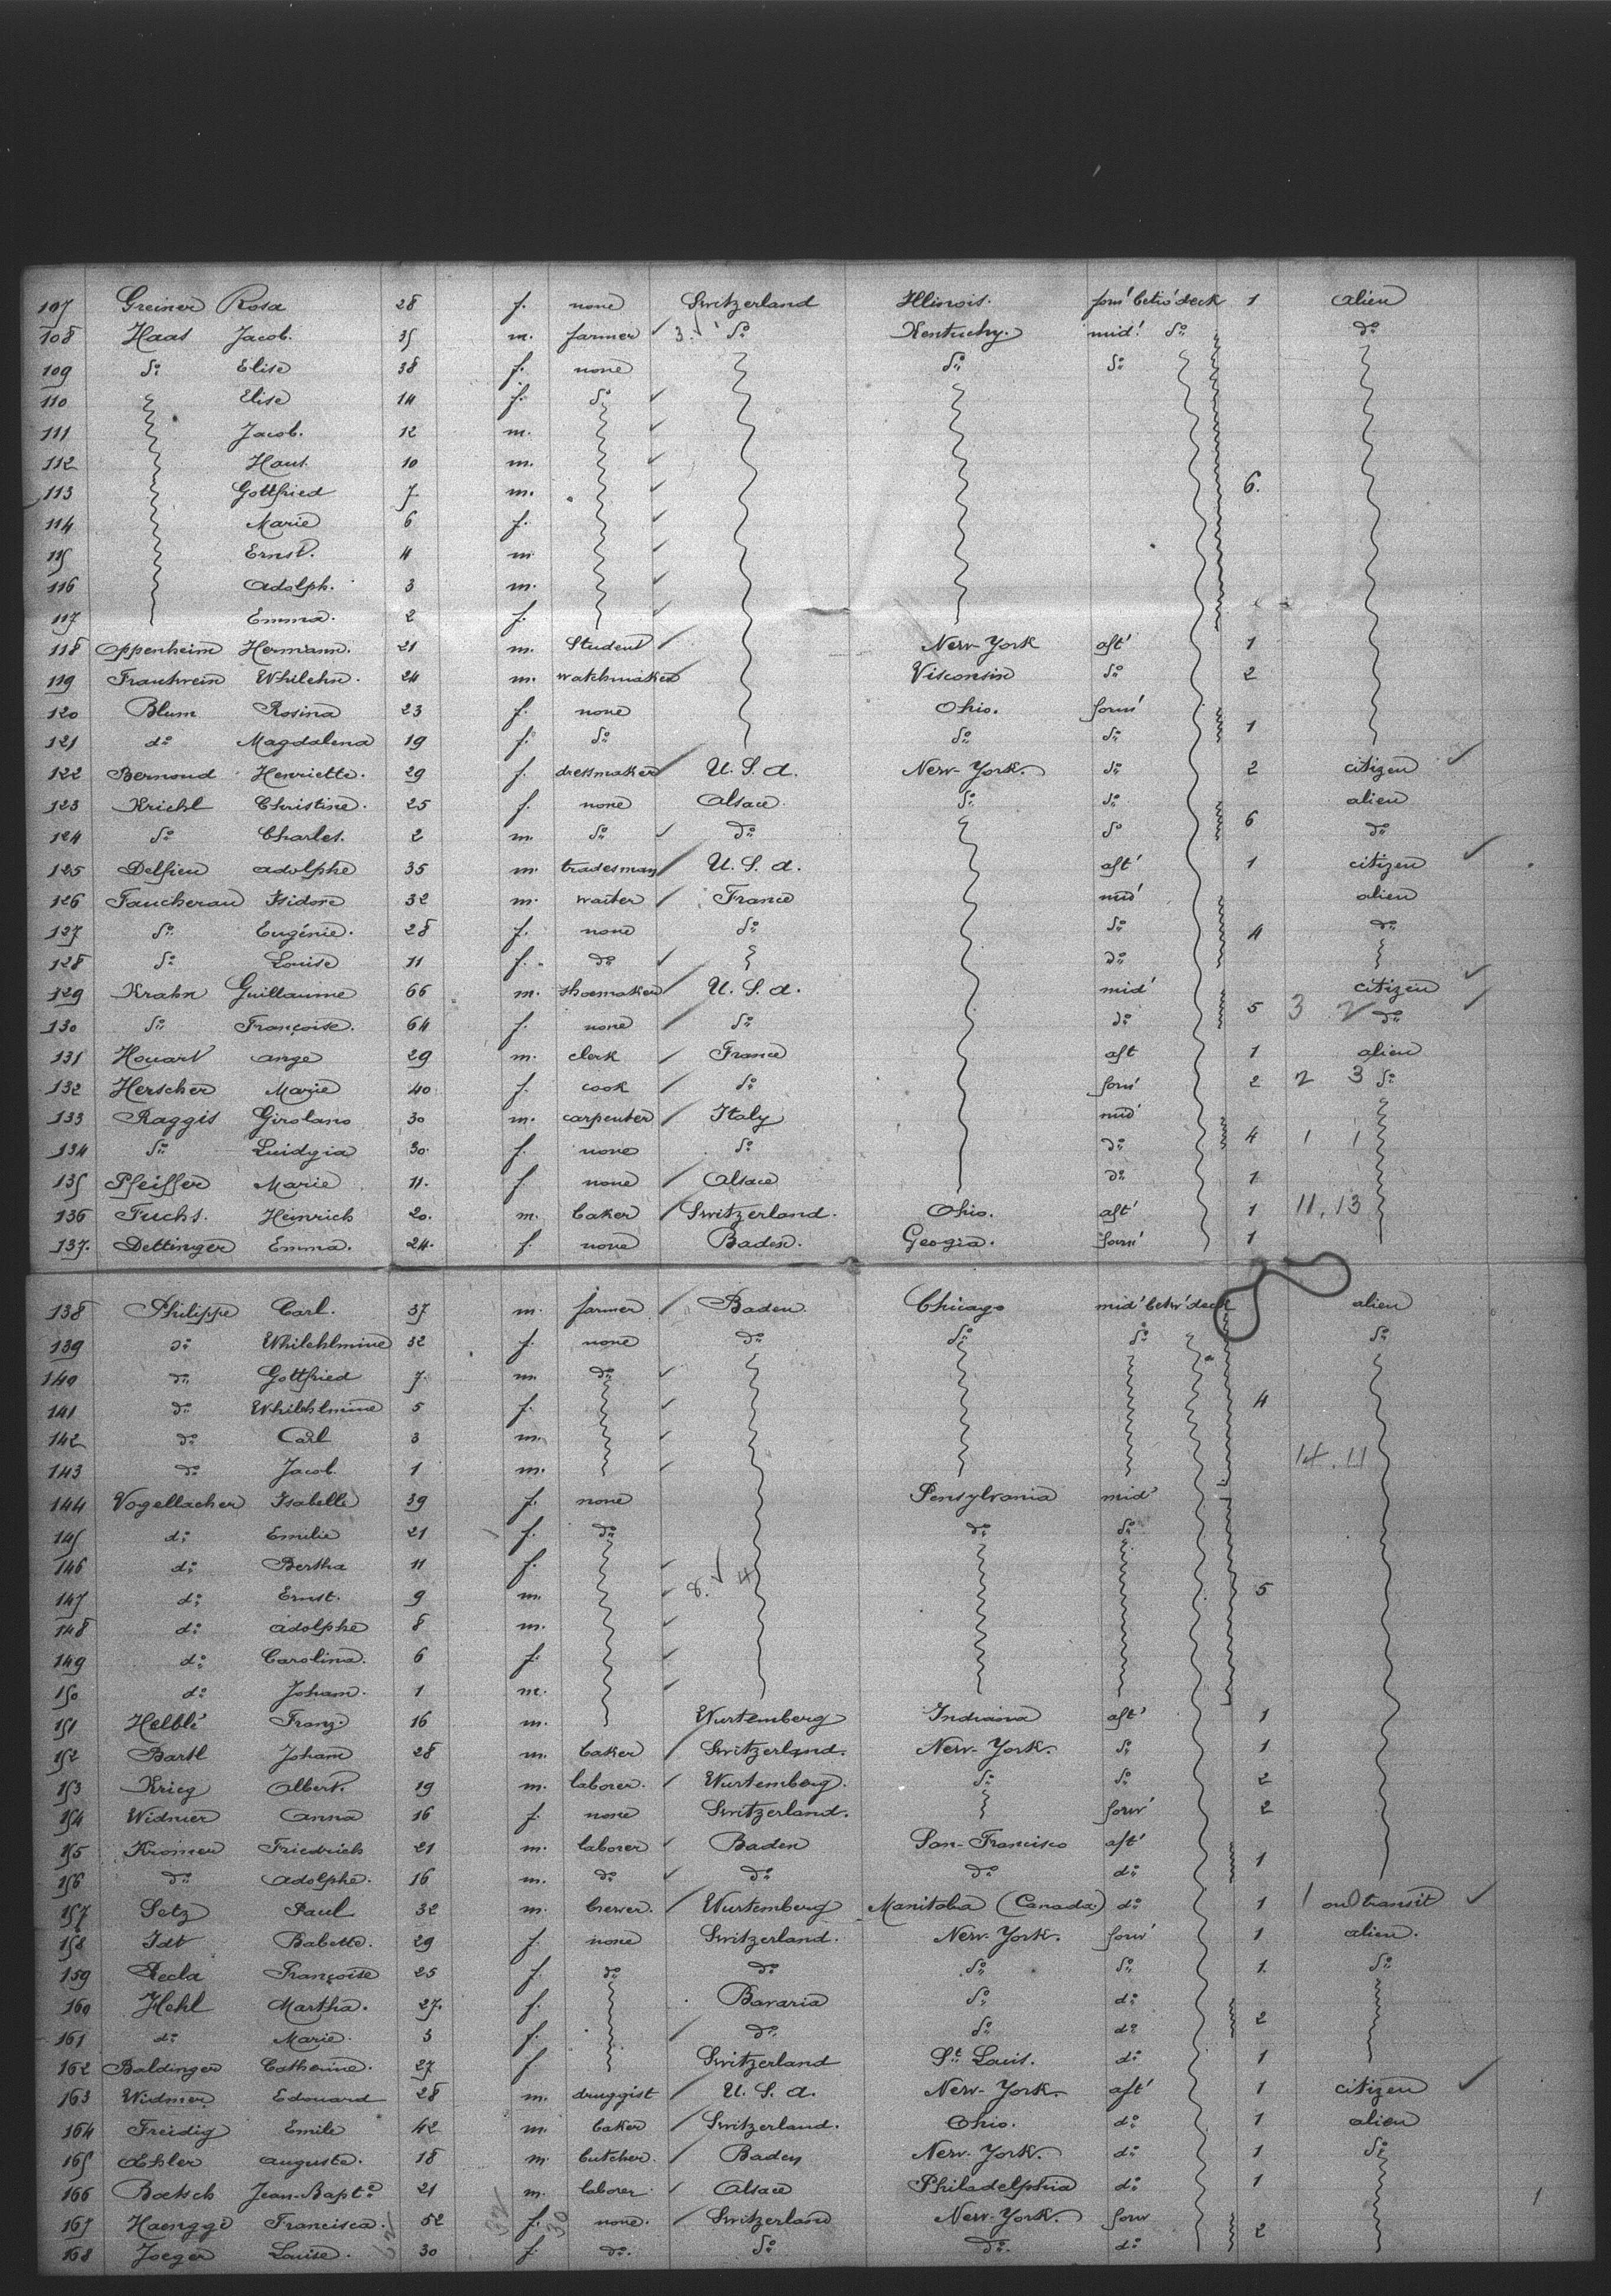 107 Greiner Rosa 28 f. none Switzerland Illinois. forw' betw' deck 1 alien
108 Haas Jacob. 35 m. farmer 3. do Kentucky. mid' do do
109 do Elise 38 f. none do do
110 Elise 14 f. do
111 Jacob. 12 m.
112 Hans. 10 m.
113 Gottfried 7 m. 6.
114 Marie 6 f.
115 Ernst. 4 m.
116 Adolph. 3 m.
117 Emma. 2 f.
118 Oppenheim Hermann. 21 m. Student New-York aft' 1
119 Trautwein Whilehn. 24 m. watchmaker Visconsin do 2
120 Blum Rosina 23 f. none Ohio. forw'
121 do Magdalena 19 f. do do do 1
122 Bernoud Henriette. 29 f. dressmaker U. S. A. New-York. do 2 citizen
123 Kriehl Christine. 25 f. none Alsace. do do alien
124 do Charles. 2 m. do do do 6 do
125 Delfieu Adolphe 35 m. tradesman U. S. A. aft' 1 citizen
126 Faucherau Isidore 32 m. waiter France mid' alien
127 do Eugénie. 28 f. none do do 4 do
128 do Louise 11 f. do do
129 Krahn Guillaume 66 m. shoemaker U. S. A. mid' citizen
130 do Françoise. 64 f. none do do 5 3 2 do
131 Houart Ange 29 m. clerk France aft 1 alien
132 Herscher Marie 40 f. cook do forw' 2 2 3 do
133 Raggis Girolano 30 m. carpenter Italy mid'
134 do Luidgia 30. f. none do do 4 1 1
135 Pfeiffer Marie 11. f. none Alsace do 1
136 Fuchs. Heinrich 20. m. baker Switzerland. Ohio. aft' 1 11.13
137. Dettinger Emma. 24. f. none Baden. Georgia. forw' 1
138 Philippe Carl. 37 m. farmer Baden Chicago mid' betw' deck alien
139 do Whilehlmine 32 f. none do do do do
140 do Gottfried 7. m. do
141 do Whilehlmine 5 f. 4
142 do Carl 3 m.
143 do Jacob. 1 m. 14.11
144 Vogellacher Isabelle 39 f. none Pensylvania mid'
145 do Emilie 21 f. do do do
146 do Bertha 11 f.
147 do Ernst. 9 m. 8. 4 5
148 do Adolphe 8 m.
149 do Carolina. 6 f.
150 do Joham. 1 m.
151 Helblé Franz. 16 m. Wurtemberg Indiana aft' 1
152 Bartl Joham 28 m. baker Switzerland. New-York. do 1
153 Krieg Albert. 19 m. laborer. Wurtemberg. do do 2
154 Widmer Anna 16 f. none Switzerland. forw' 2
155 Kromer Friedrich 21 m. laborer Baden San-Francisco aft'
156 do Adolphe. 16 m. do do do do 1
157 Setz Paul 32 m. brewer. Wurtemberg Manitoba (Canada.) do 1 1 on transit
158 Idt Babette. 29 f. none Switzerland. New-York. forw' 1 alien.
159 Recla Françoise 25 f. do do do do 1. do
160 Hehl Martha. 27. f. Bavaria do do
161 do Marie. 3 f. do do do 2
162 Baldinger Catherine. 27 f Switzerland St. Louis. do 1
163 Widmer Edouard 28 m. druggist U. S. A. New-York. aft' 1 citizen
164 Freidig Emile 42 m. baker Switzerland. Ohio. do 1 alien
165 Ehler Auguste. 18 m. butcher. Baden New-York. do 1 do
166 Boetsch Jean-Bapte 21 m. laborer. Alsace Philadelphia do 1
167 Haenggi Francisca. 52 f. 30 none. Switzerland New-York. forw 2
168 Joeger Louise. 30 f. do. do do. do